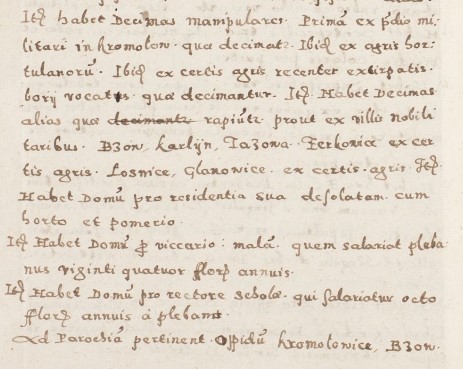 Itẽ habet Decimas manipulares. Primã ex p̃dio mi,
litari in kromolow. quæ decimat̃. Ibid ex agris hor,
tulanorũ. Ibid ex certis agris recenter extirpatis.
borij vocatis quæ decimantur. Itẽ Habet Decimas
alias quæ decimant̃ rapiũt̃ prout ex villis nobili
taribus. Bzow, karlijn, Jazowa. Ferkovice ex cer
tis agris. Losnice, Glanowice. ex certis. agris. Itẽ
Habet Domũ pro residentia sua desolatam. cum
horto et pomerio.
Itẽ Habet Domũ ꝓ viccario: malã. quem salariat pleba
nus viginti quatuor fflorẽ annuis.
Itẽ Habet Domũ pro rectore scholæ. qui salariatur octo
fflorẽ annuis à plebano.
Ad Parochiã pertinent. Oppidũ kromolowice, Bzow.